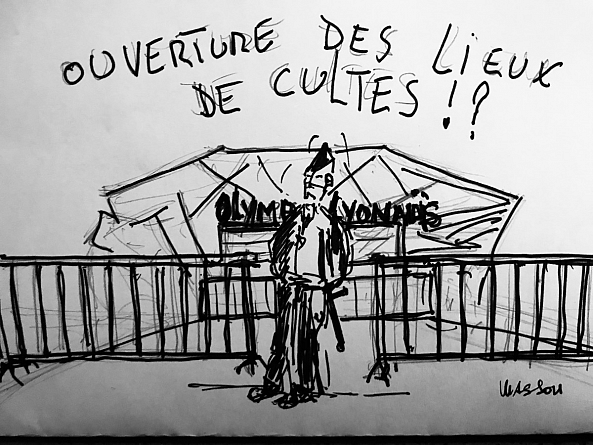 OUVERTURE DES LIEUX
DE CULTES !?
OLYMP YONNAIS